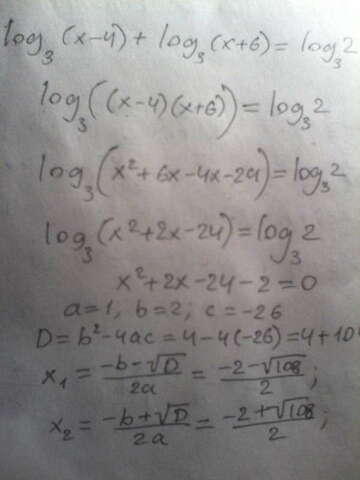 log₃(x-4) + log₃(x+6) = log₃2
log₃((x-4)(x+6)) = log₃2
log₃(x²+6x-4x-24) = log₃2
log₃(x²+2x-24) = log₃2
x²+2x-24-2=0
a=1, b=2; c=-26
D=b²-4ac=4-4(-26)=4+104
x₁ = (-b-√D)/2a = (-2-√108)/2;
x₂ = (-b+√D)/2a = (-2+√108)/2;